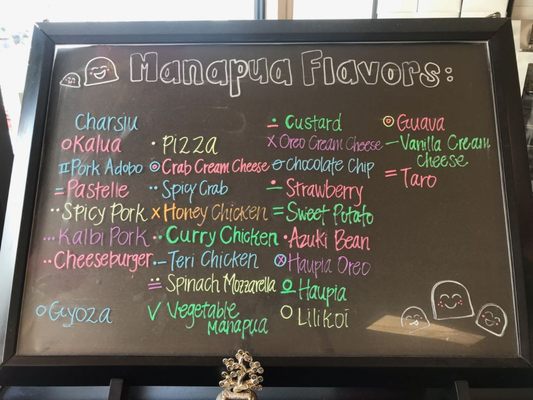 Manapua Flavors:
Charsiu
Kalua
Pork Adobo
Pastelle
Spicy Pork
Kalbi Pork
Cheeseburger
Gyoza
Pizza
Crab Cream Cheese
Spicy Crab
Honey Chicken
Curry Chicken
Teri Chicken
Spinach Mozzarella
Vegetable
Manapua
Custard
Oreo Cream Cheese
Chocolate Chip
Strawberry
Sweet Potato
Azuki Bean
Haupia Oreo
Haupia
Lilikoi
Guava
Vanilla Cream
Cheese
Taro